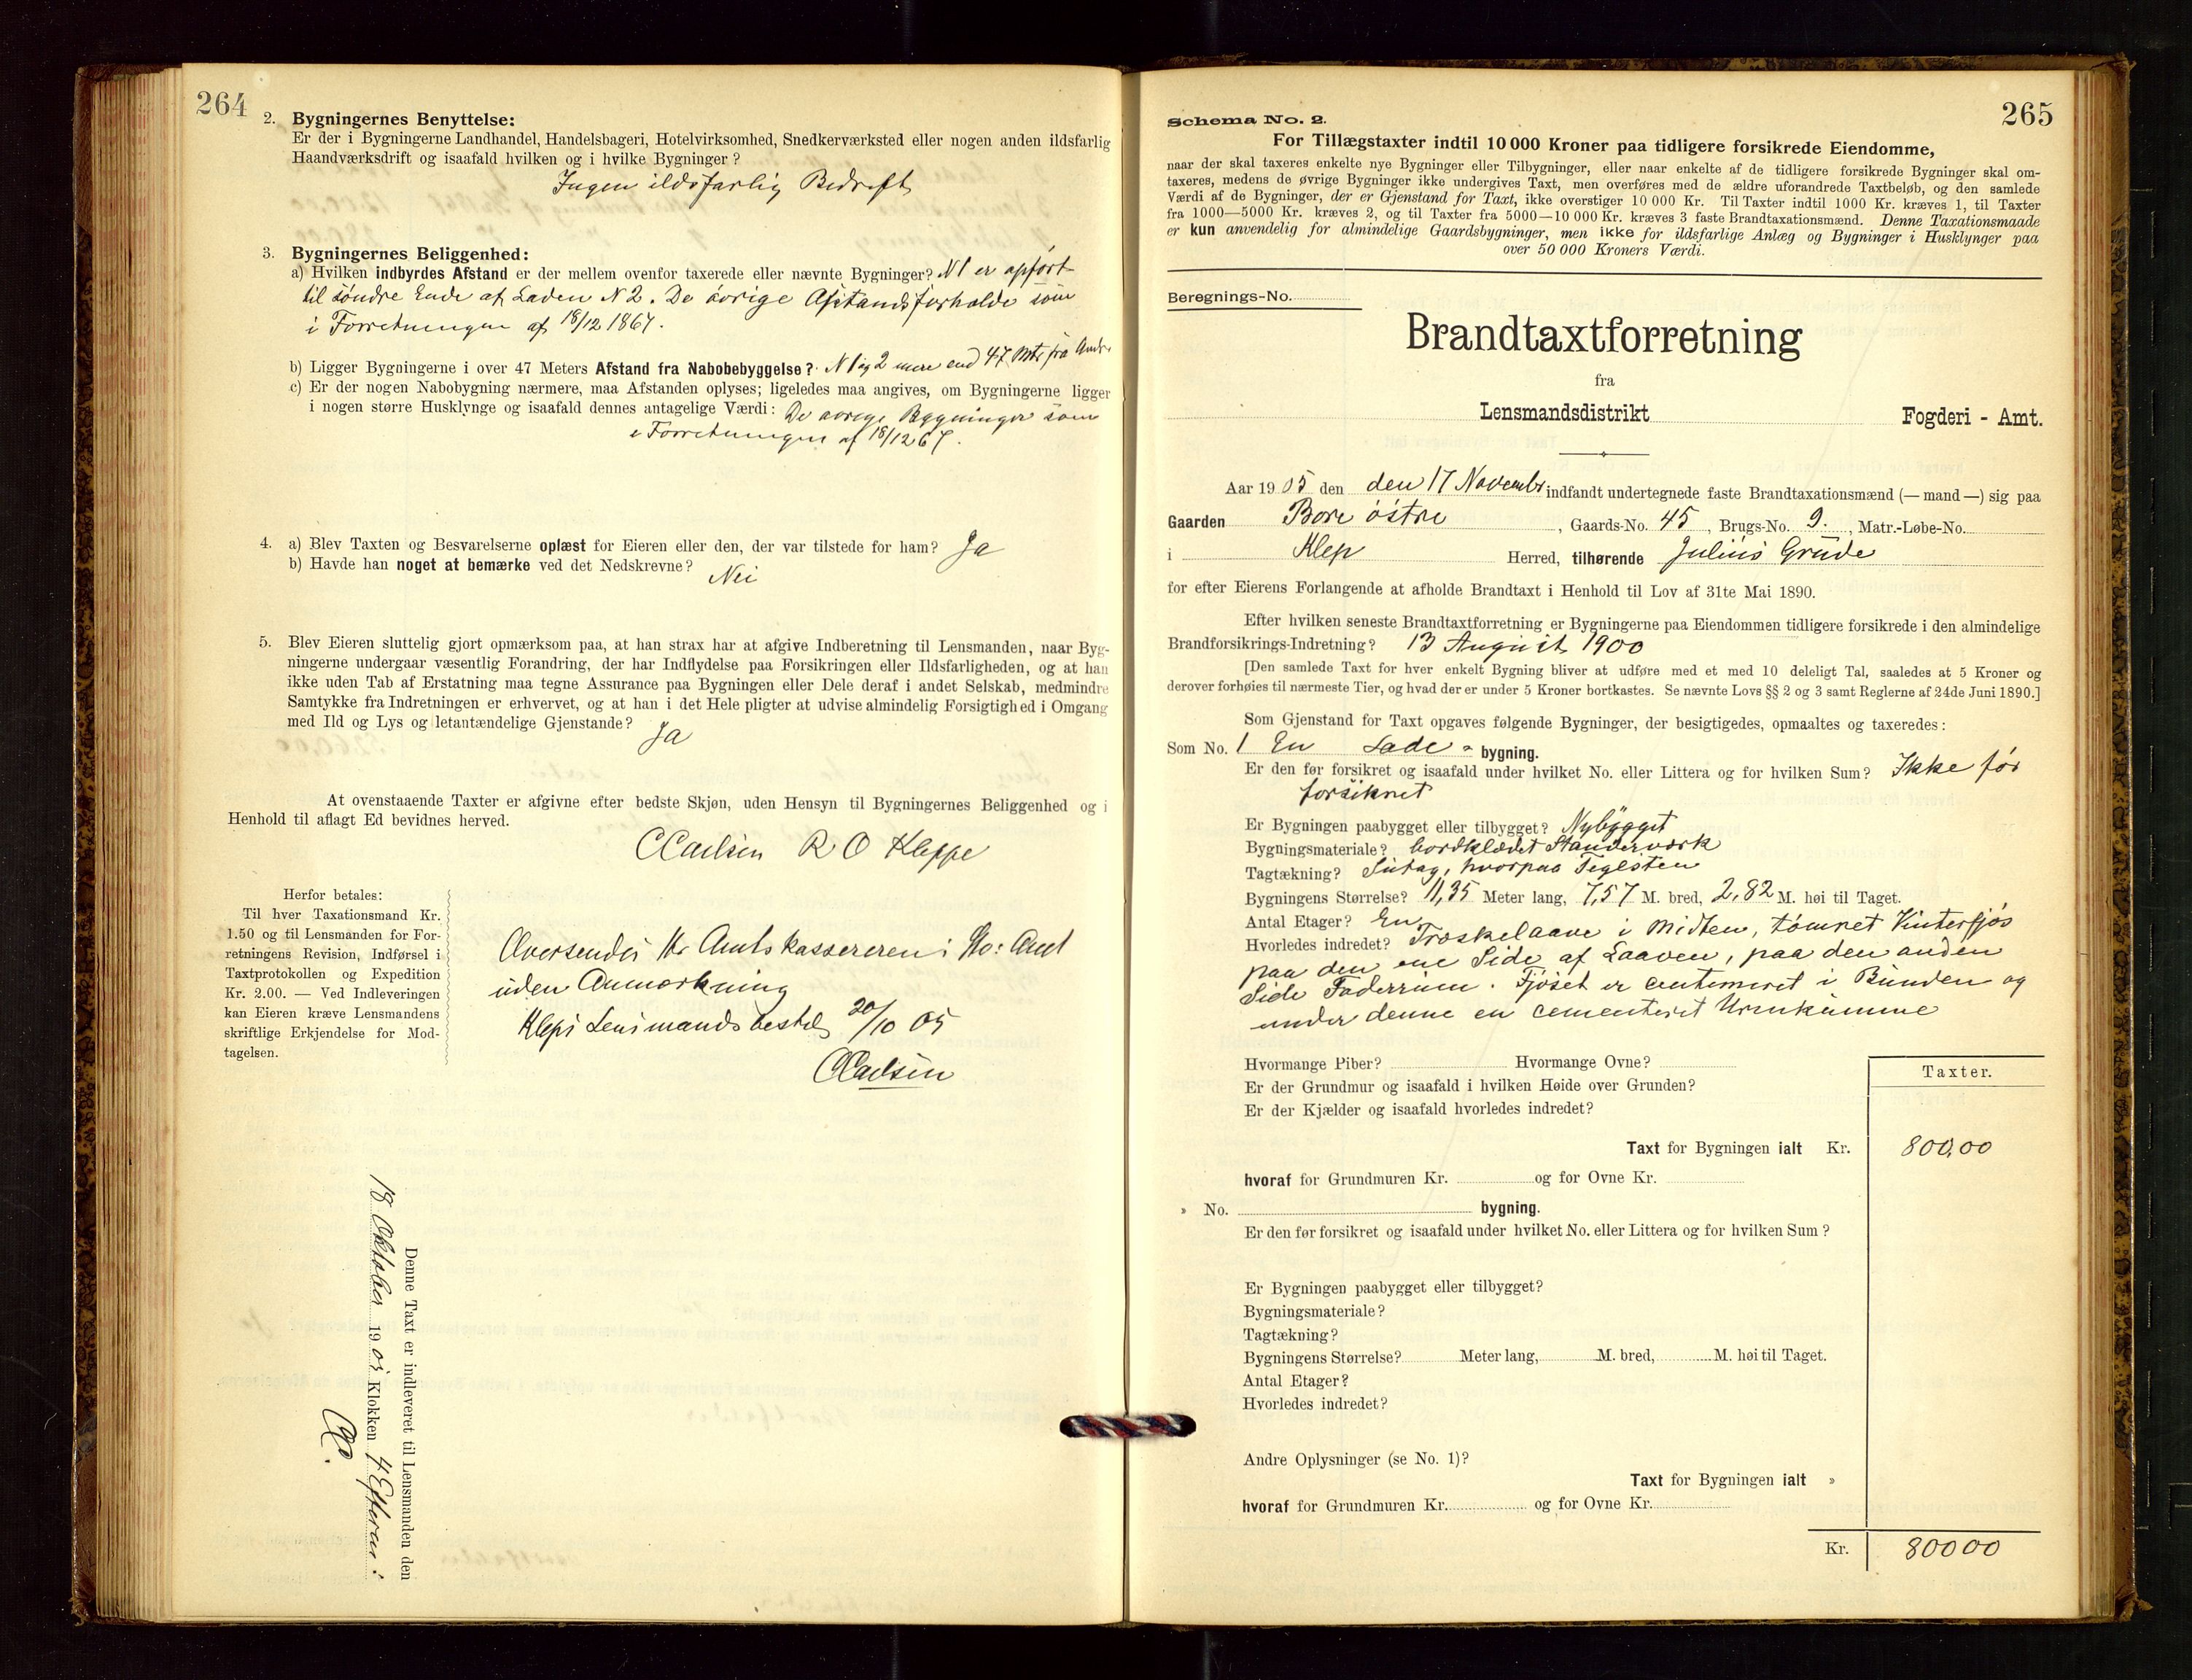 264
2. Bygningernes Benyttelse:
Er der i Bygningerne Landhandel, Handelsbageri, Hotelvirksomhed, Snedkerværksted eller nogen anden ildsfarlig
Haandværksdrift og isaafald hvilken og i hvilke Bygninger?
Ingen ildsfarlig Bedrift
3. Bygningernes Beliggenhed:
a) Hvilken indbyrdes Afstand er der mellem ovenfor taxerede eller nævnte Bygninger? N 1 er opført
til søndre Ende af Laden N 2. De øvrige Afstandsforholde som
i Forretningen af 18/12 1867.
b) Ligger Bygningerne i over 47 Meters Afstand fra Nabobebyggelse? N 1 og 2 mere end 47 Mtr fra Andre
c) Er der nogen Nabobygning nærmere, maa Afstanden oplyses; ligeledes maa angives, om Bygningerne ligger
i nogen større Husklynge og isaafald dennes antagelige Værdi: De øvrige Bygninger som
i Forretningen af 18/12 67.
4. a) Blev Taxten og Besvarelserne oplæst for Eieren eller den, der var tilstede for ham? Ja
b) Havde han noget at bemærke ved det Nedskrevne? Nei
5. Blev Eieren sluttelig gjort opmærksom paa, at han strax har at afgive Indberetning til Lensmanden, naar Byg-
ningerne undergaar væsentlig Forandring, der har Indflydelse paa Forsikringen eller Ildsfarligheden, og at han
ikke uden Tab af Erstatning maa tegne Assurance paa Bygningen eller Dele deraf i andet Selskab, medmindre
Samtykke fra Indretningen er erhvervet, og at han i det Hele pligter at udvise almindelig Forsigtighed i Omgang
med Ild og Lys og letantændelige Gjenstande? Ja
At ovenstaaende Taxter er afgivne efter bedste Skjøn, uden Hensyn til Bygningernes Beliggenhed og i
Henhold til aflagt Ed bevidnes herved.
C Carlsen R O Kleppe
Herfor betales:
Til hver Taxationsmand Kr.
1.50 og til Lensmanden for For-
retningens Revision, Indførsel i
Taxtprotokollen og Expedition
Kr. 2.00. — Ved Indleveringen
kan Eieren kræve Lensmandens
skriftlige Erkjendelse for Mod-
tagelsen.
Oversendes Hr Amtskassereren i Sta: Amt
uden Anmærkning
Kleps Lensmandsbestil 20/10 05
C Carlsen
Denne Taxt er indleveret til Lensmanden den
18 Oktober 1905 Klokken 4 Efterm:
265
Schema No. 2.
For Tillægstaxter indtil 10 000 Kroner paa tidligere forsikrede Eiendomme,
naar der skal taxeres enkelte nye Bygninger eller Tilbygninger, eller naar enkelte af de tidligere forsikrede Bygninger skal om-
taxeres, medens de øvrige Bygninger ikke undergives Taxt, men overføres med de ældre uforandrede Taxtbeløb, og den samlede
Værdi af de Bygninger, der er Gjenstand for Taxt, ikke overstiger 10 000 Kr. Til Taxter indtil 1000 Kr. kræves 1, til Taxter
fra 1000—5000 Kr. kræves 2, og til Taxter fra 5000—10 000 Kr. kræves 3 faste Brandtaxationsmænd. Denne Taxationsmaade
er kun anvendelig for almindelige Gaardsbygninger, men ikke for ildsfarlige Anlæg og Bygninger i Husklynger paa
over 50 000 Kroners Værdi.
Beregnings-No.
Brandtaxtforretning
fra
Lensmandsdistrikt Fogderi - Amt.
Aar 1905 den den 17 Novembr indfandt undertegnede faste Brandtaxationsmænd (— mand —) sig paa
Gaarden Bore østre, Gaards-No. 45, Brugs-No. 9., Matr.-Løbe-No.
i Klep Herred, tilhørende Julius Grude
for efter Eierens Forlangende at afholde Brandtaxt i Henhold til Lov af 31te Mai 1890.
Efter hvilken seneste Brandtaxtforretning er Bygningerne paa Eiendommen tidligere forsikrede i den almindelige
Brandforsikrings-Indretning? 13 August 1900
[Den samlede Taxt for hver enkelt Bygning bliver at udføre med et med 10 deleligt Tal, saaledes at 5 Kroner og
derover forhøies til nærmeste Tier, og hvad der er under 5 Kroner bortkastes. Se nævnte Lovs §§ 2 og 3 samt Reglerne af 24de Juni 1890.]
Som Gjenstand for Taxt opgaves følgende Bygninger, der besigtigedes, opmaaltes og taxeredes:
Som No. 1 En Lade - bygning.
Er den før forsikret og isaafald under hvilket No. eller Littera og for hvilken Sum? Ikke før
forsikret
Er Bygningen paabygget eller tilbygget? Nybygget
Bygningsmateriale? bordklædet Standerværk
Tagtækning? Sutag, hvorpaa Teglsten
Bygningens Størrelse? 11,35 Meter lang, 7,57 M. bred, 2,82 M. høi til Taget.
Antal Etager? En
Hvorledes indredet? Træskelaave i Midten, tømret Vinterfjøs
paa den ene Side af Laaven, paa den anden
Side Foderrum. Fjøset er cementeret i Bunden og
under denne en cementeret Urinkumme
Hvormange Piber? Hvormange Ovne?
Er der Grundmur og isaafald i hvilken Høide over Grunden?
Er der Kjælder og isaafald hvorledes indredet?
Taxter.
Taxt for Bygningen ialt Kr. 800,00
hvoraf for Grundmuren Kr. og for Ovne Kr.
» No. bygning.
Er den før forsikret og isaafald under hvilket No. eller Littera og for hvilken Sum?
Er Bygningen paabygget eller tilbygget?
Bygningsmateriale?
Tagtækning?
Bygningens Størrelse? Meter lang, M. bred, M. høi til Taget.
Antal Etager?
Hvorledes indredet?
Andre Oplysninger (se No. 1)?
Taxt for Bygningen ialt »
hvoraf for Grundmuren Kr. og for Ovne Kr.
Kr. 80000